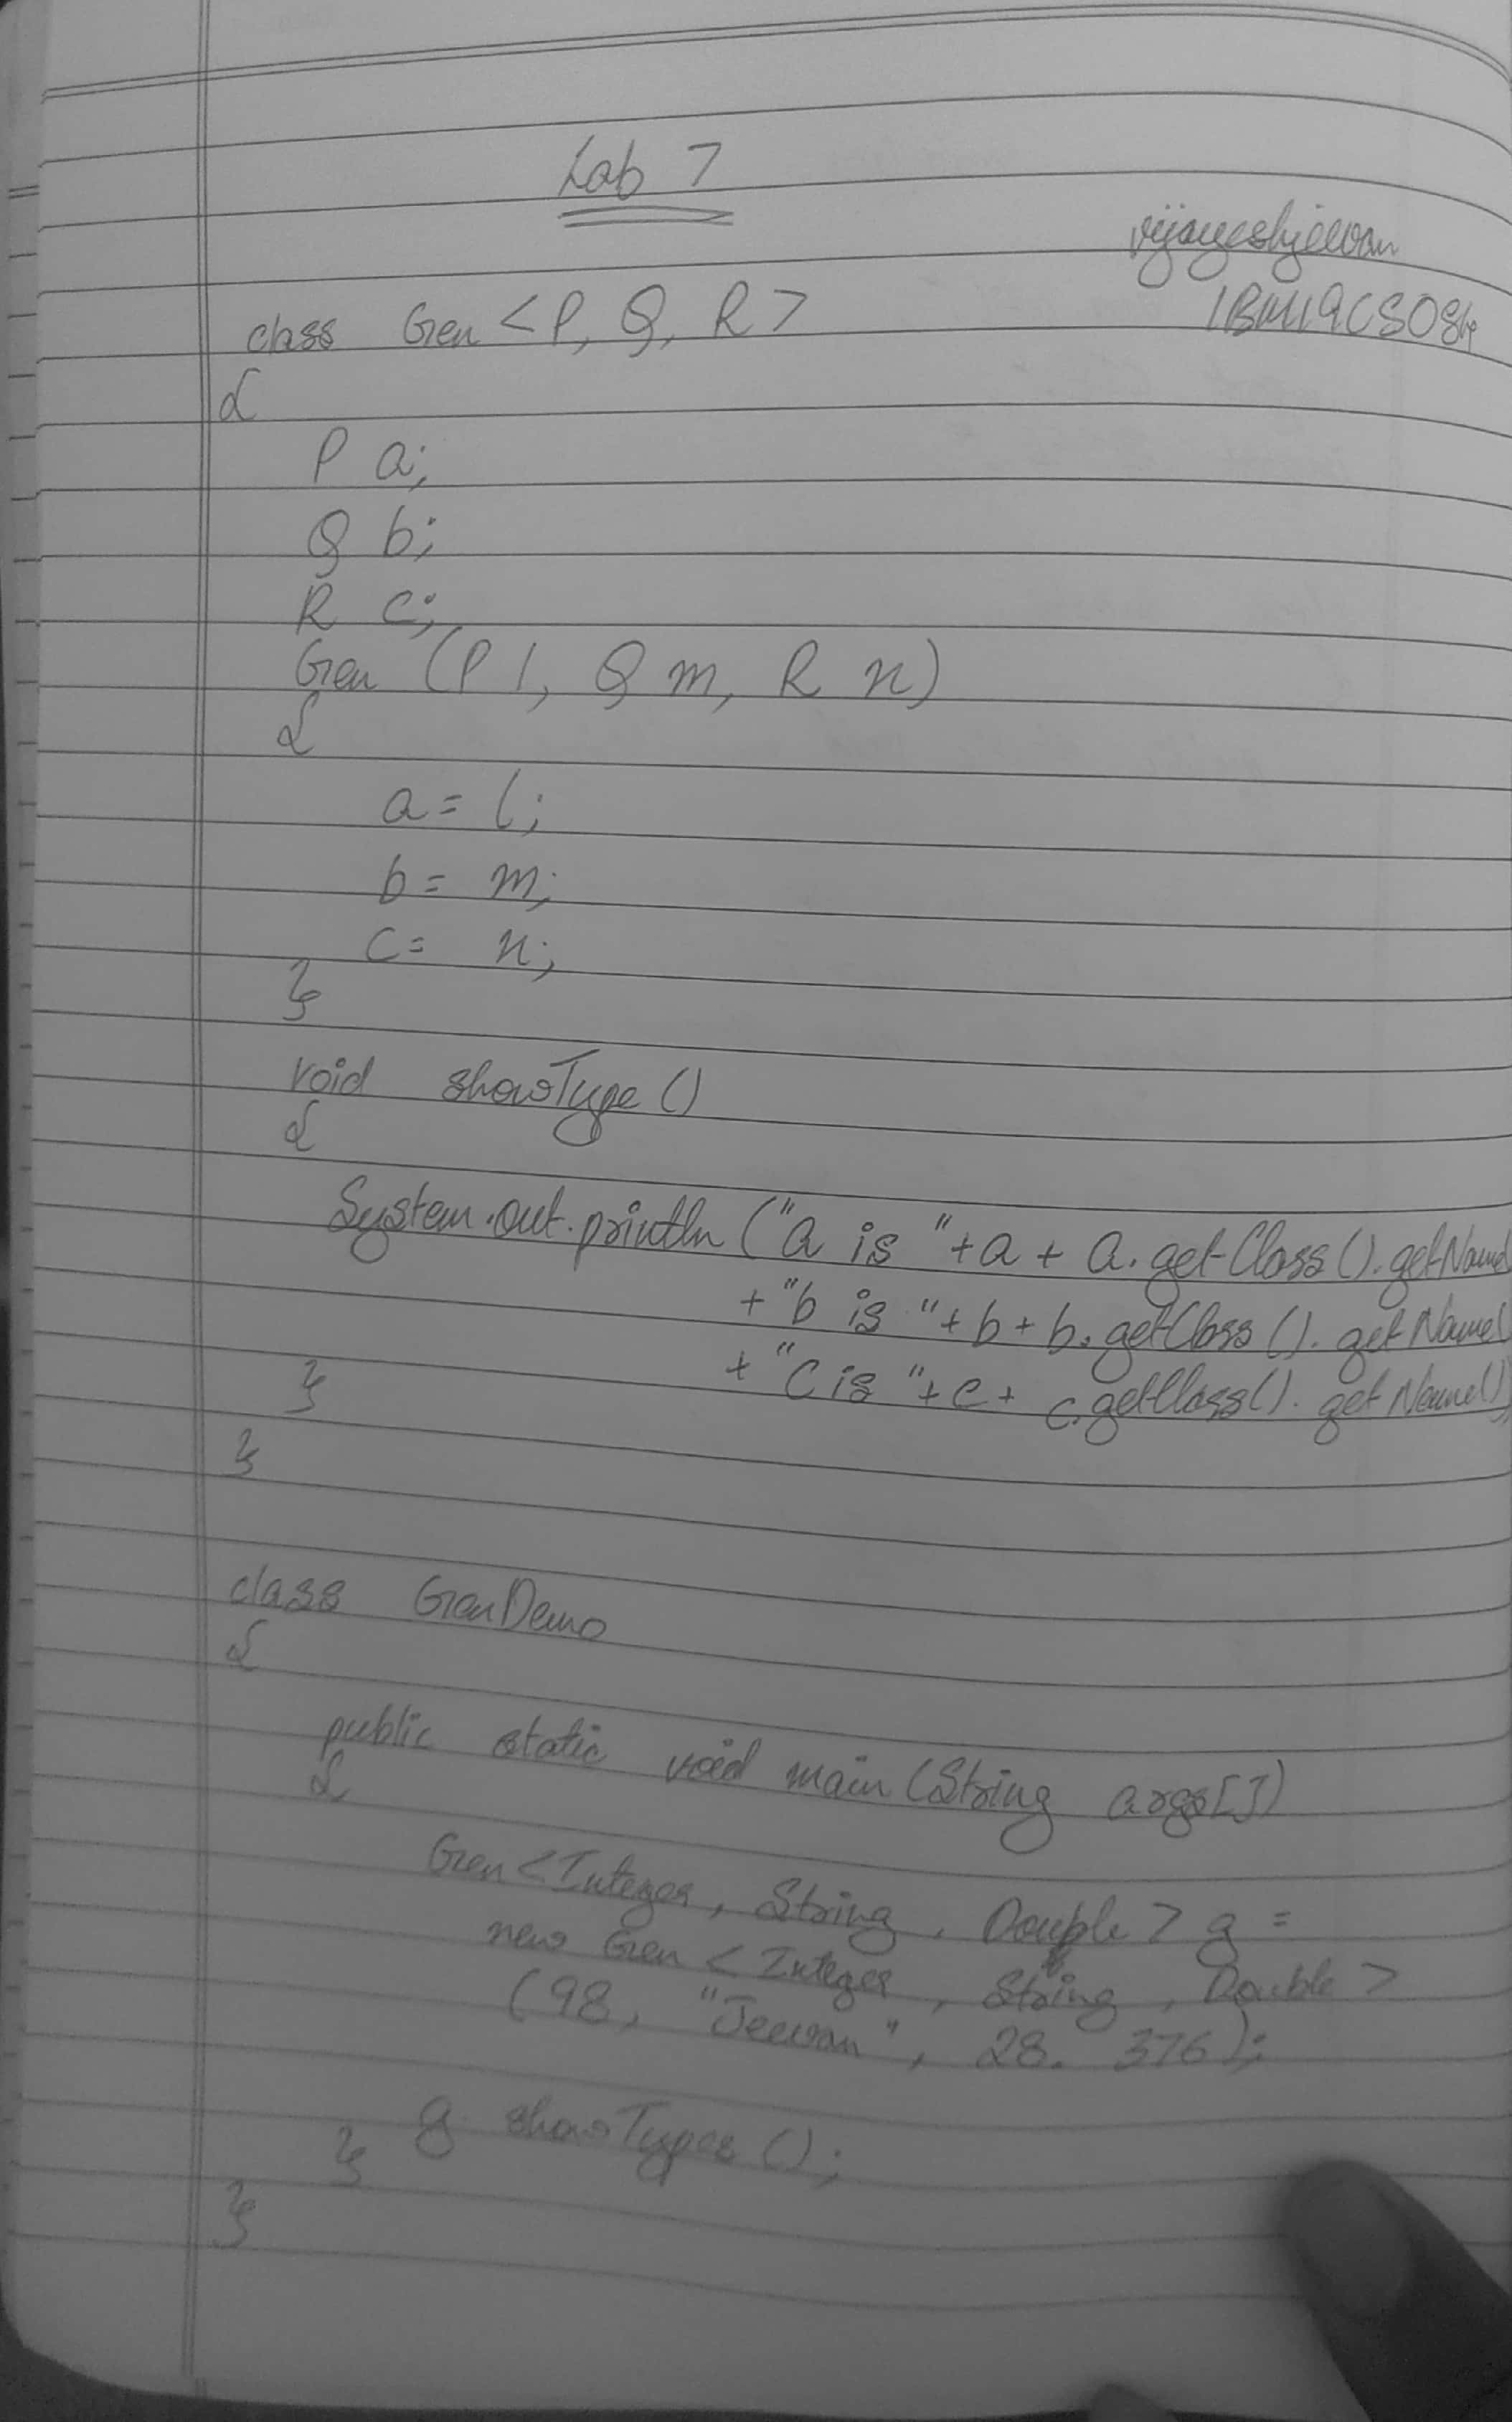 Lab 7
vijayeshjeevan
class Gen <P, Q, R>
{
P a;
Q b;
R c;
Gen (P l, Q m, R n)
{
a = l;
b = m;
c = n;
}
void showType ()
{
System.out.println ("a is "+a + a.getClass().getName
+ "b is "+ b + b.getClass(). getName(
+ "c is "+ c + c.getClass(). getName()
}
}
class GenDemo
{
public static void main (String args[])
{
Gen <Integer, String, Double> g =
new Gen <Integer, String, Double>
(98, "Jeevan", 28. 376);
g showTypes ();
}
}